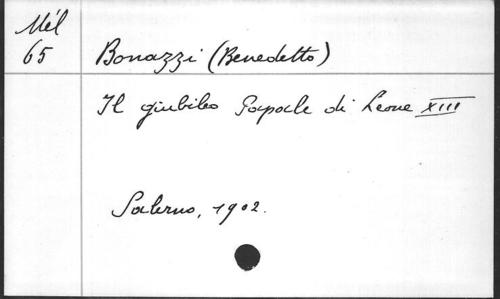 Mél
65
Bonazzi (Benedetto)
Il giubileo Papale di Leone XIII
Salerno, 1902.